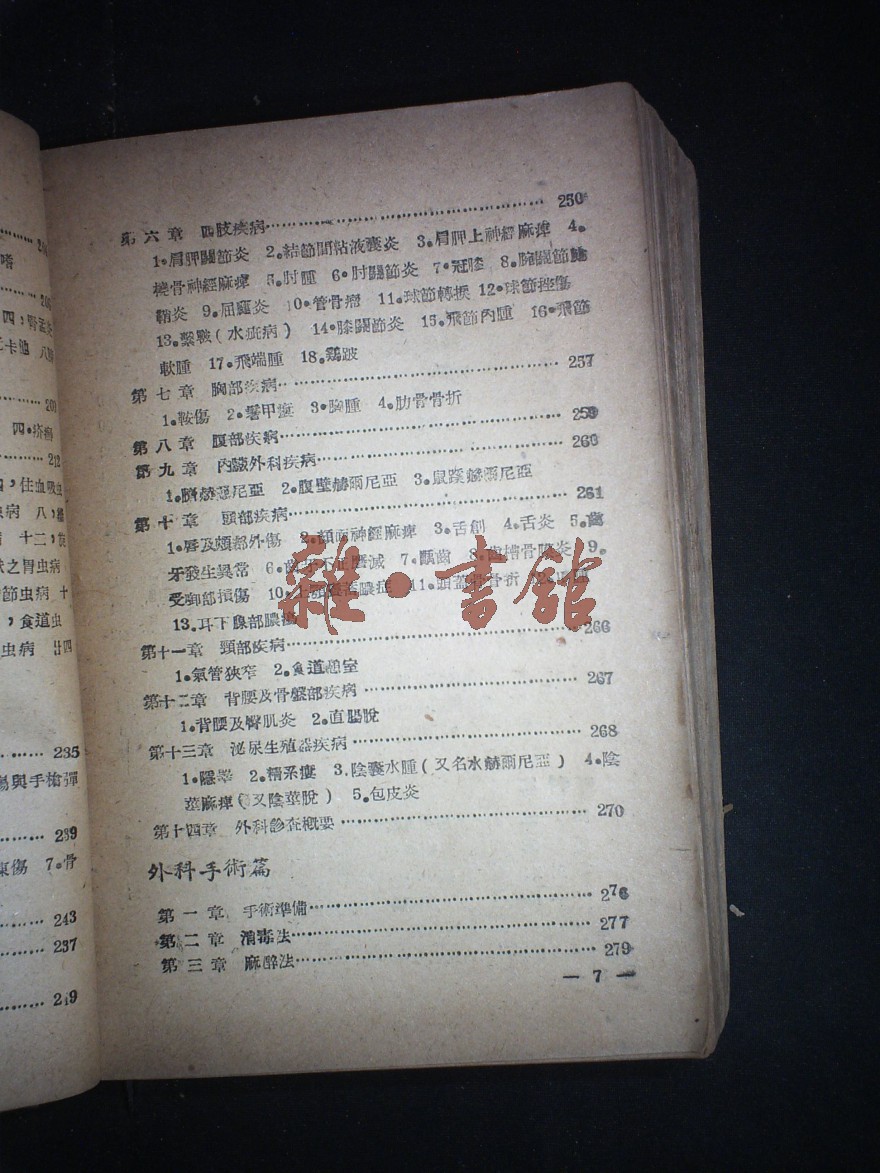 第六章 四肢疾病 250
1.肩胛關節炎 2.結節間粘液囊炎 3.肩胛上神經麻痺 4.
橈骨神經麻痺 5.肘腫 6.肘關節炎 7.冠膝 8.腕關節
鞘炎 9.屈腱炎 10.管骨瘤 11.球節轉捩 12.球節挫傷
13.繫皸(水疵病) 14.膝關節炎 15.飛節內腫 16.飛節
軟腫 17.飛端腫 18.鷄跛
第七章 胸部疾病 257
1.鞍傷 2.鬐甲瘻 3.胸腫 4.肋骨骨折
第八章 腹部疾病 259
第九章 內臟外科疾病 260
1.臍赫爾尼亞 2.腹壁赫爾尼亞 3.鼠蹊赫爾尼亞
第十章 頭部疾病 261
1.唇及頰部外傷 2.顏面神經麻痺 3.舌創 4.舌炎 5.齒
牙發生異常 6.齒牙不正磨滅 7.齲齒 8.齒槽骨膜炎 9.
受卸部損傷 10.上顎竇蓄膿症 11.頭蓋骨骨折
13.耳下腺部膿瘍
雜·書館
第十一章 頸部疾病 266
1.氣管狹窄 2.食道憩室
第十二章 背腰及骨盤部疾病 267
1.背腰及臀肌炎 2.直腸脫
第十三章 泌尿生殖器疾病 268
1.隱睪 2.精系瘻 3.陰囊水腫(又名水赫爾尼亞) 4.陰
莖麻痺(又陰莖脫) 5.包皮炎
第十四章 外科診查概要 270
外科手術篇
第一章 手術準備 276
第二章 消毒法 277
第三章 麻醉法 279
— 7 —
嗜
四,腎盂炎
卡他 八
四.疥癬
212
四,住血吸虫
病 八,
十二,
狀之胃虫病
節虫病 十
,食道虫
虫病 廿四
235
傷與手槍彈
239
凍傷 7.骨
243
237
249